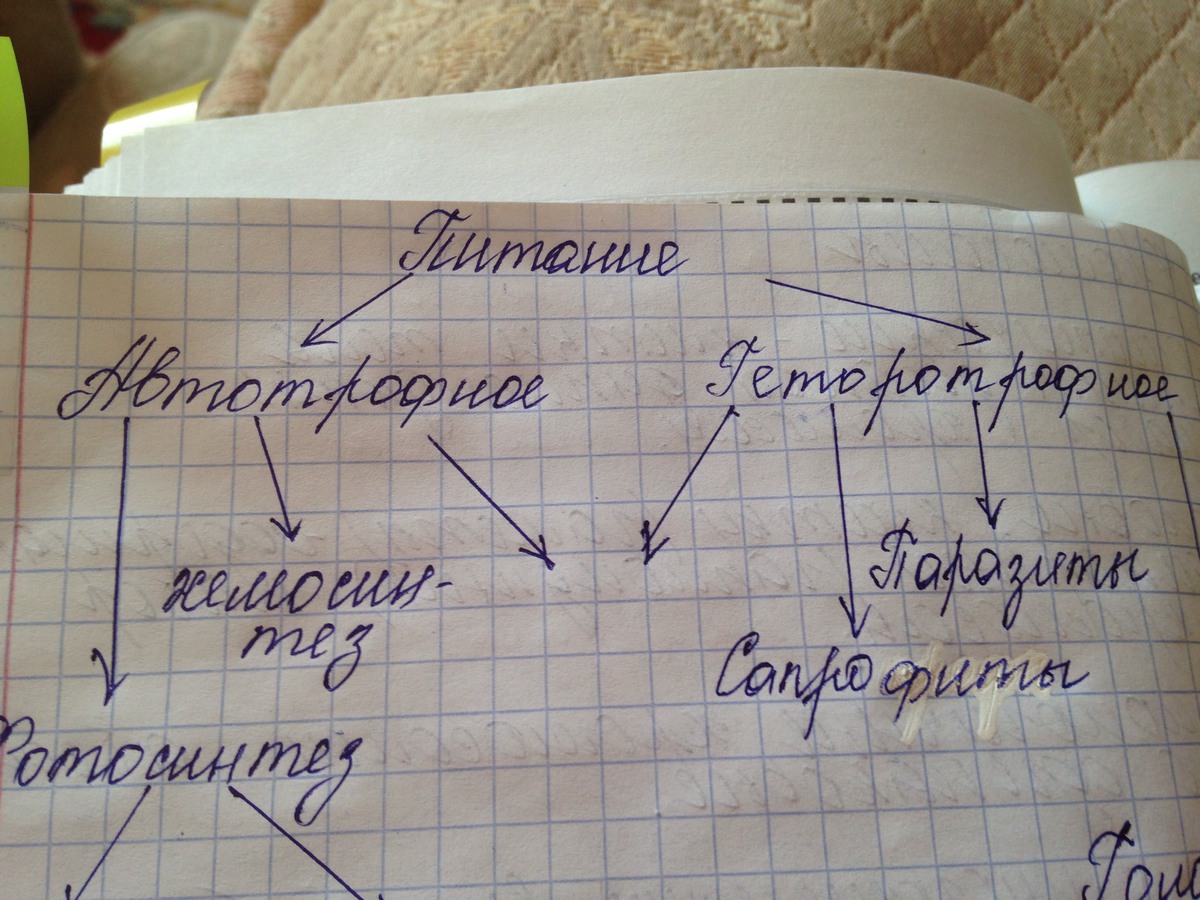 Питание
Автотрофное
Геторотрофное
хемосин-
тез
Паразиты
Сапрофиты
Фотосинтез